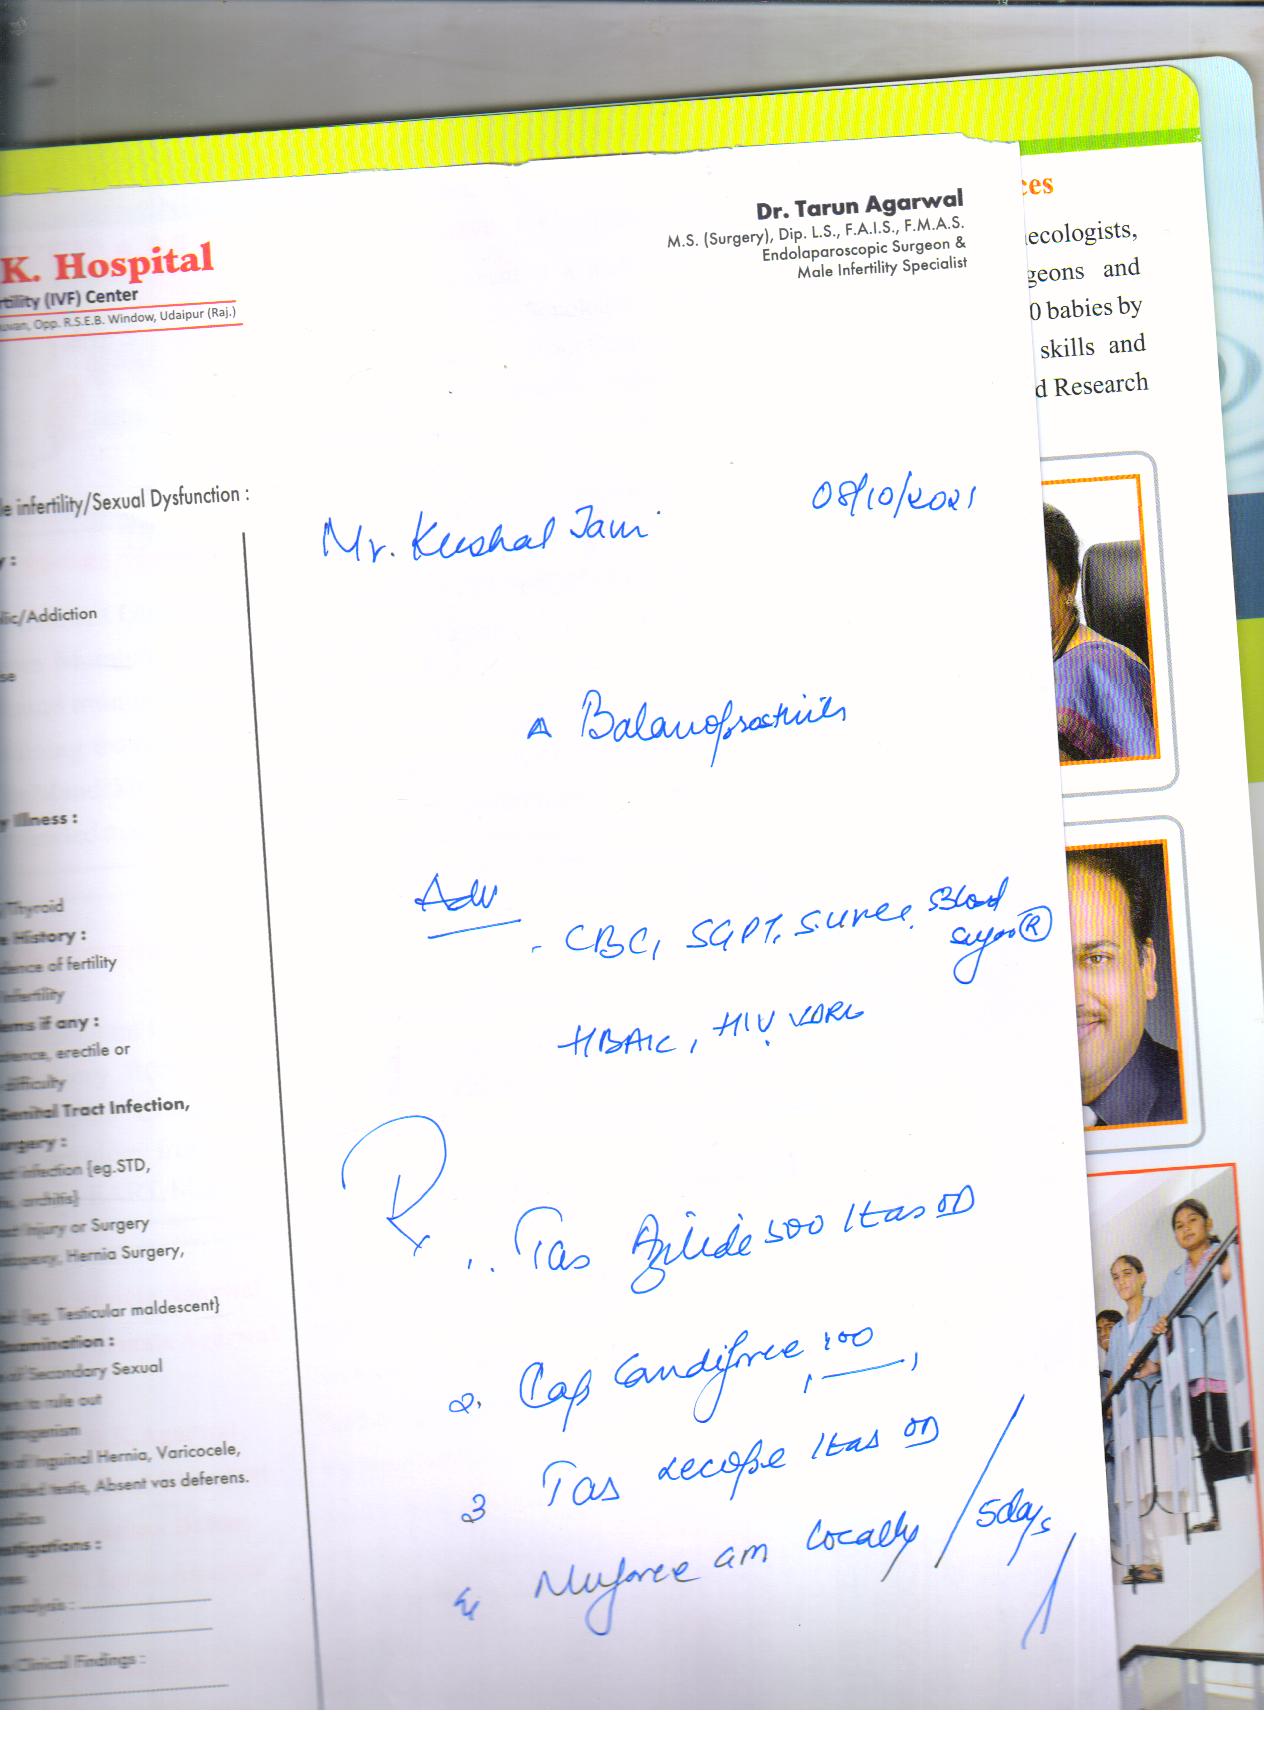 Dr. Tarun Agarwal
M.S. (Surgery), Dip. L.S., F.A.I.S., F.M.A.S.
Endolaparoscopic Surgeon &
Male Infertility Specialist
K. Hospital
rtility (IVF) Center
Opp. R.S.E.B. Window, Udaipur (Raj.)
ces
ecologists,
geons and
0 babies by
skills and
d Research
e infertility/Sexual Dysfunction :
08/10/2021
Mr. Kushal
y :
lic/Addiction
se
y Illness :
Thyroid
e History :
dence of fertility
infertility
ems if any :
erectile or
difficulty
Genital Tract Infection,
urgery :
ct infection {eg.STD,
ct Injury or Surgery
Hernia Surgery,
{eg. Testicular maldescent}
Examination :
Secondary Sexual
to rule out
of Inguinal Hernia, Varicocele,
testis, Absent vas deferens.
Clinical Findings :
Adv
- CBC, SGPT, S. Blood
Sugar (R)
HBA1C, HIV, VDRL
R
1. Tab 500 1tab OD
2. Cap Candiforce 100
3 Tab 1tab OD
4 Nuforce GM locally / 5days